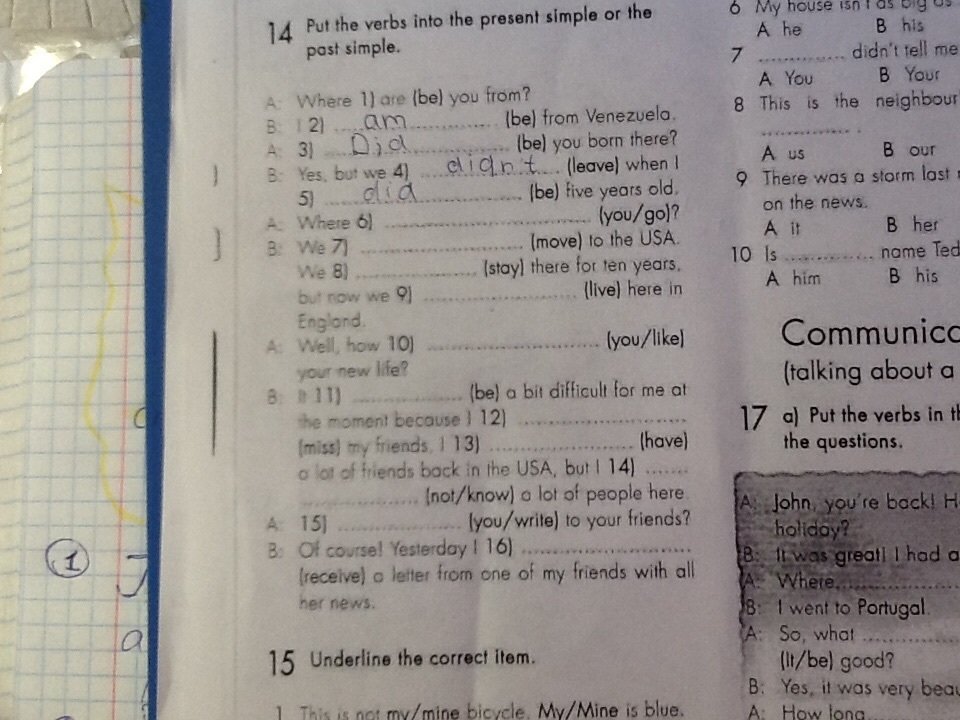 14 Put the verbs into the present simple or the
past simple.
A: Where 1) are (be) you from?
B: I 2) ....am.............. (be) from Venezuela.
A: 3) ....Did.................. (be) you born there?
B: Yes, but we 4) ....didn't.... (leave) when I
5) ......did................... (be) five years old.
A: Where 6) .................................. (you/go)?
B: We 7) .......................... (move) to the USA.
We 8) ..................... (stay) there for ten years,
but now we 9) .......................... (live) here in
England.
A: Well, how 10) ............................ (you/like)
your new life?
B: It 11) .................. (be) a bit difficult for me at
the moment because I 12) ............................
(miss) my friends. I 13) ........................ (have)
a lot of friends back in the USA, but I 14) .......
.................... (not/know) a lot of people here.
A: 15) .................... (you/write) to your friends?
B: Of course! Yesterday I 16) ............................
(receive) a letter from one of my friends with all
her news.
15 Underline the correct item.
1 This is not my/mine bicycle. My/Mine is blue.
6 My house isn't as big as
A he B his
7 .............. didn't tell me
A You B Your
8 This is the neighbour
................
A us B our
9 There was a storm last
on the news.
A it B her
10 Is .............. name Ted
A him B his
Communic
(talking about a
17 a) Put the verbs in th
the questions.
A: John, you're back! H
holiday?
B: It was great! I had a
A: Where..............
B: I went to Portugal.
A: So, what ..............
(It/be) good?
B: Yes, it was very beau
A: How long
1
a